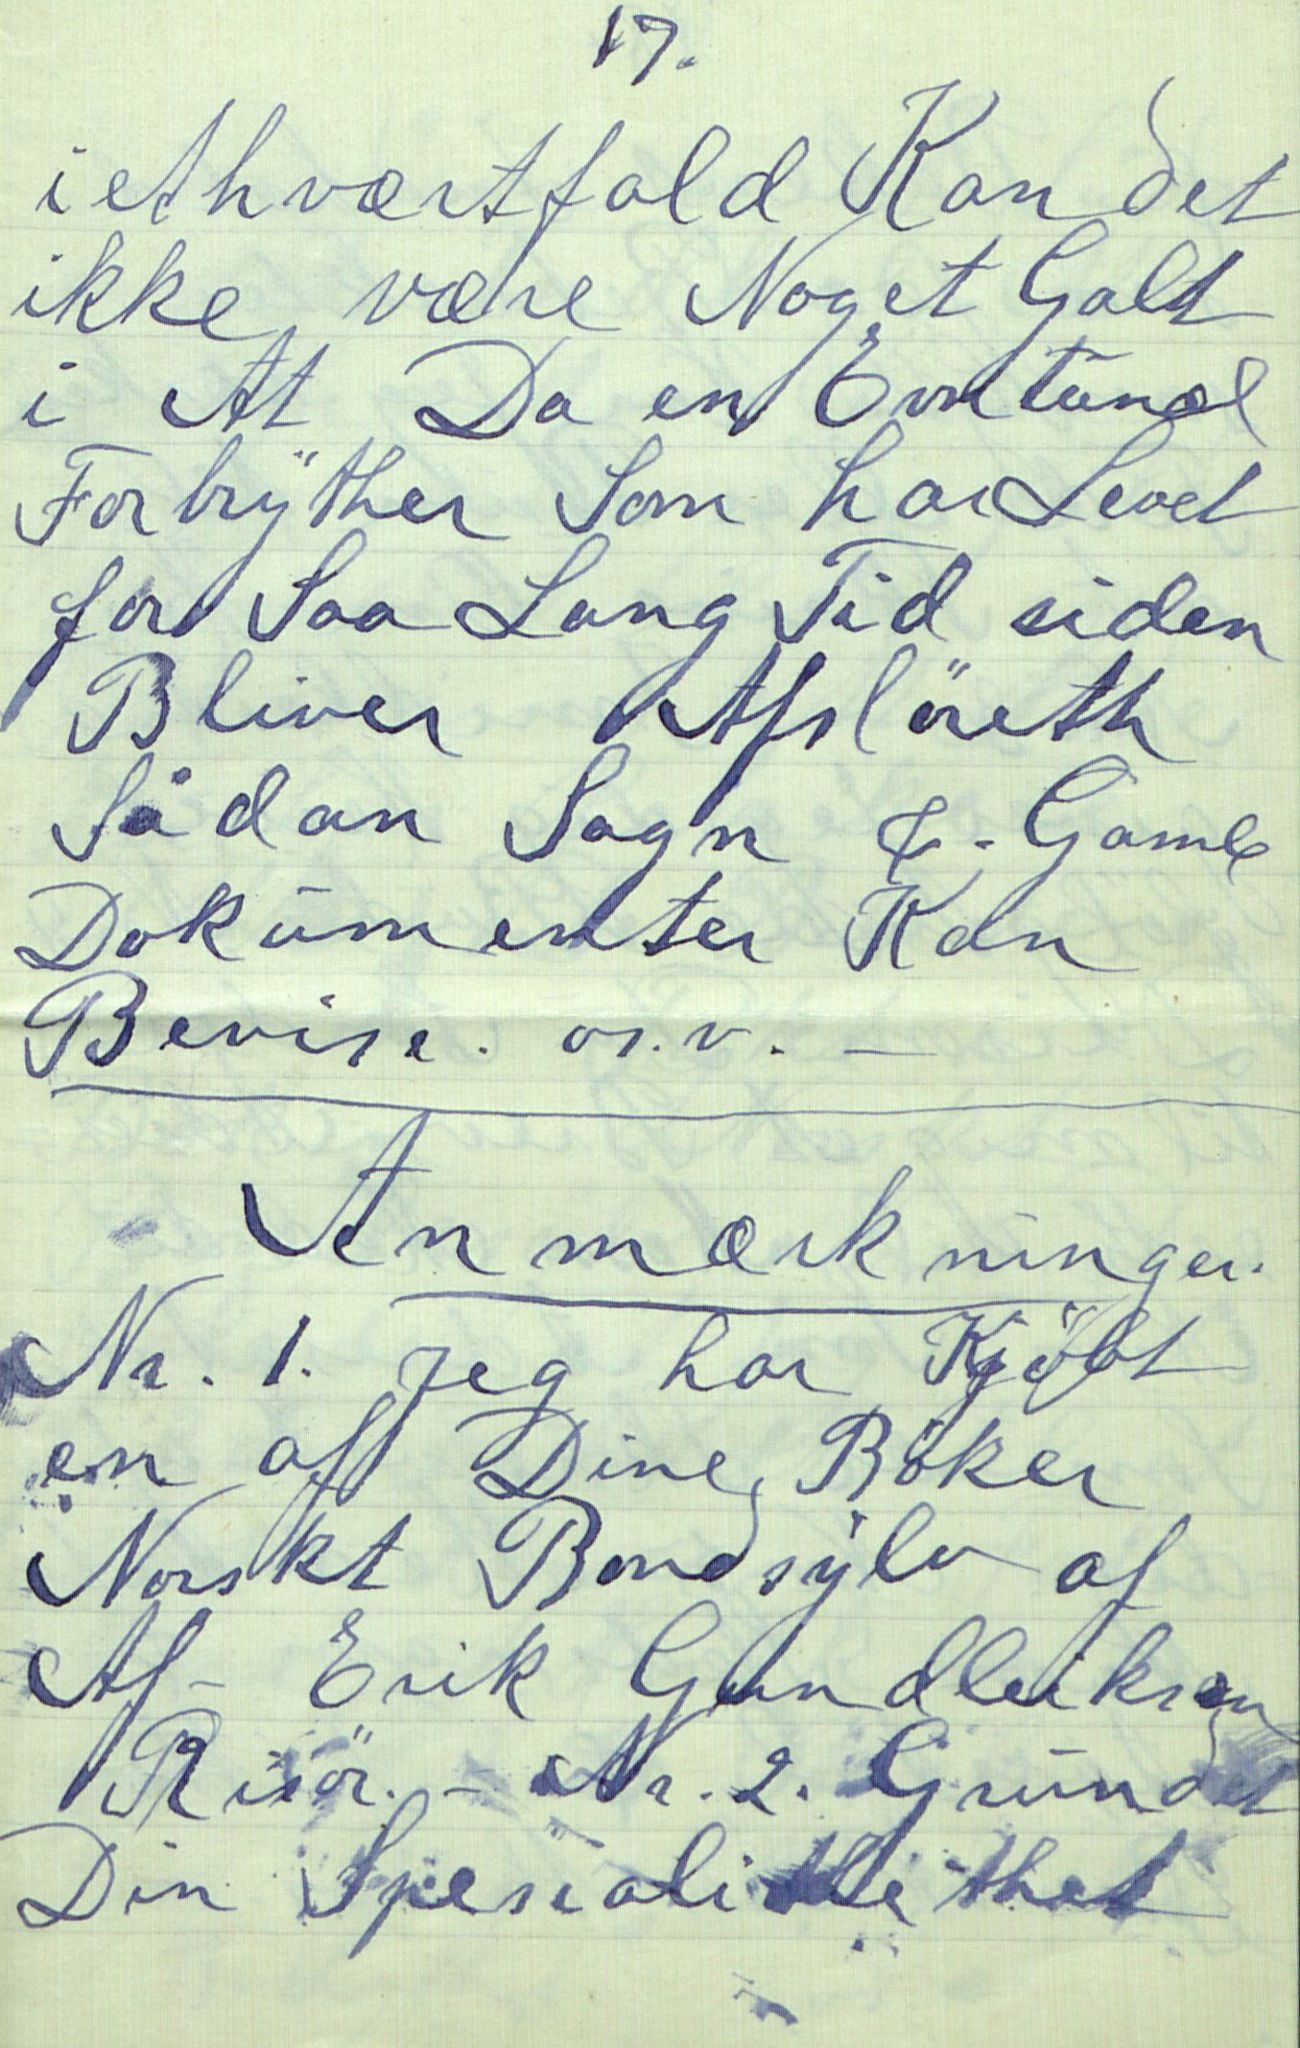 17.
i ethværtfald Kan det
ikke være Noget Galt
i At Da en Evntuael
Forbryther Som har Levet
for Saa Lang Tid siden
Bliver Afsløreth
Sådan Sagn &. Gamle
Dokumenter Kan
Bevise. os.v. –
Anmærkninger.
Nr. 1. jeg har Kjøbt
en af Dine Böker
Norskt Bondsylv af
Af – Erik Gundleiksen
Risör. – Nr. 2. Grundet
Din